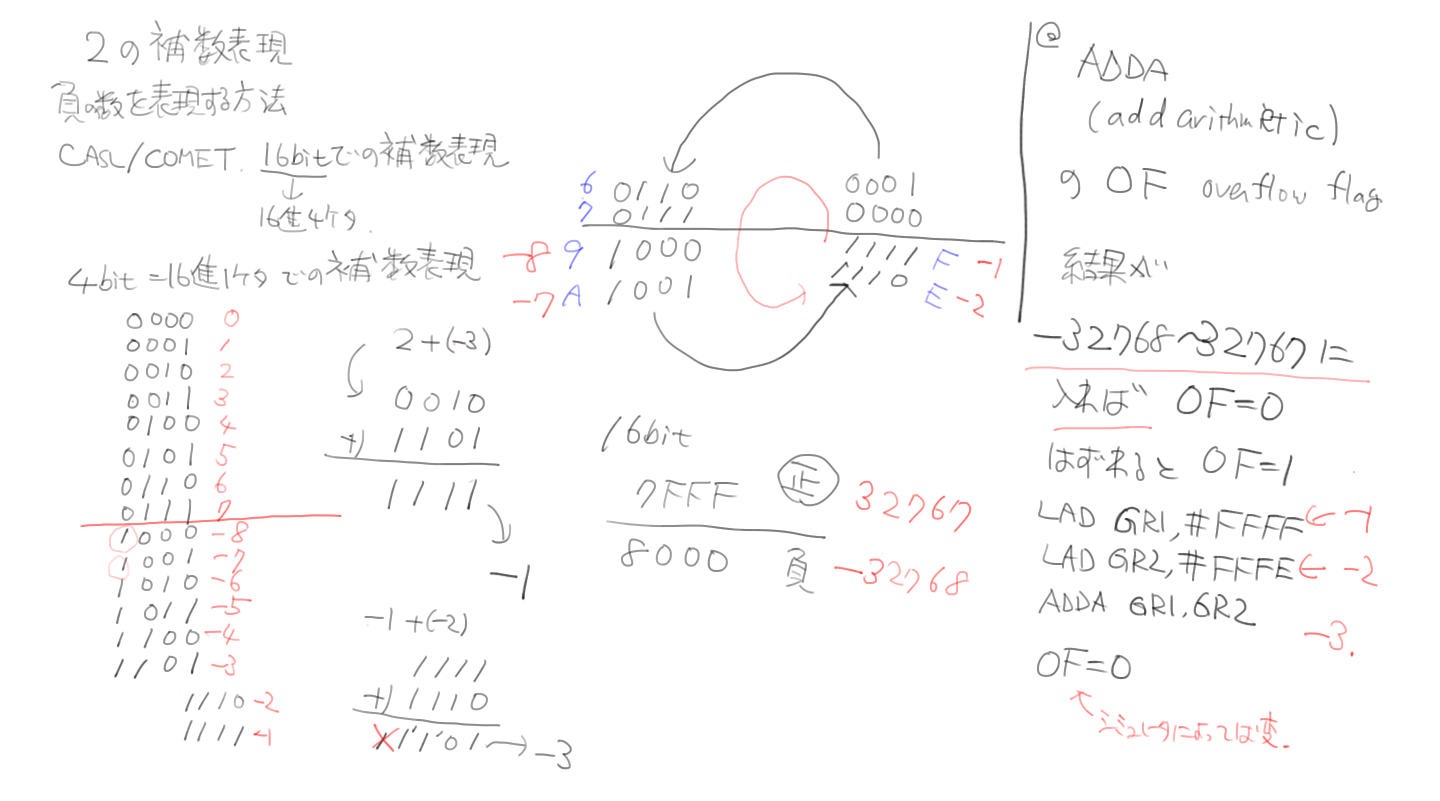 2の補数表現
負の数を表現する方法
CASL/COMET. 16bitでの補数表現
↓
16進4ケタ.
4bit=16進1ケタでの補数表現
0000 0
0001 1
0010 2
0011 3
0100 4
0101 5
0110 6
0111 7
1000 -8
1001 -7
1010 -6
1011 -5
1100 -4
1101 -3
1110 -2
1111 -1
2+(-3)
0010
+) 1101
1111
-1
-1+(-2)
1111
+) 1110
11101→-3
6 0110
7 0111
-8 9 1000
-7 A 1001
0001
0000
1111 F -1
1110 E -2
16bit
7FFF 正 32767
8000 負 -32768
@
ADDA
(add arithmetic)
の OF overflow flag
結果が
-32768~32767に
入れば OF=0
はずれると OF=1
LAD GR1,#FFFF ← -1
LAD GR2,#FFFE ← -2
ADDA GR1,GR2
-3.
OF=0
↑シミュレータによっては変.